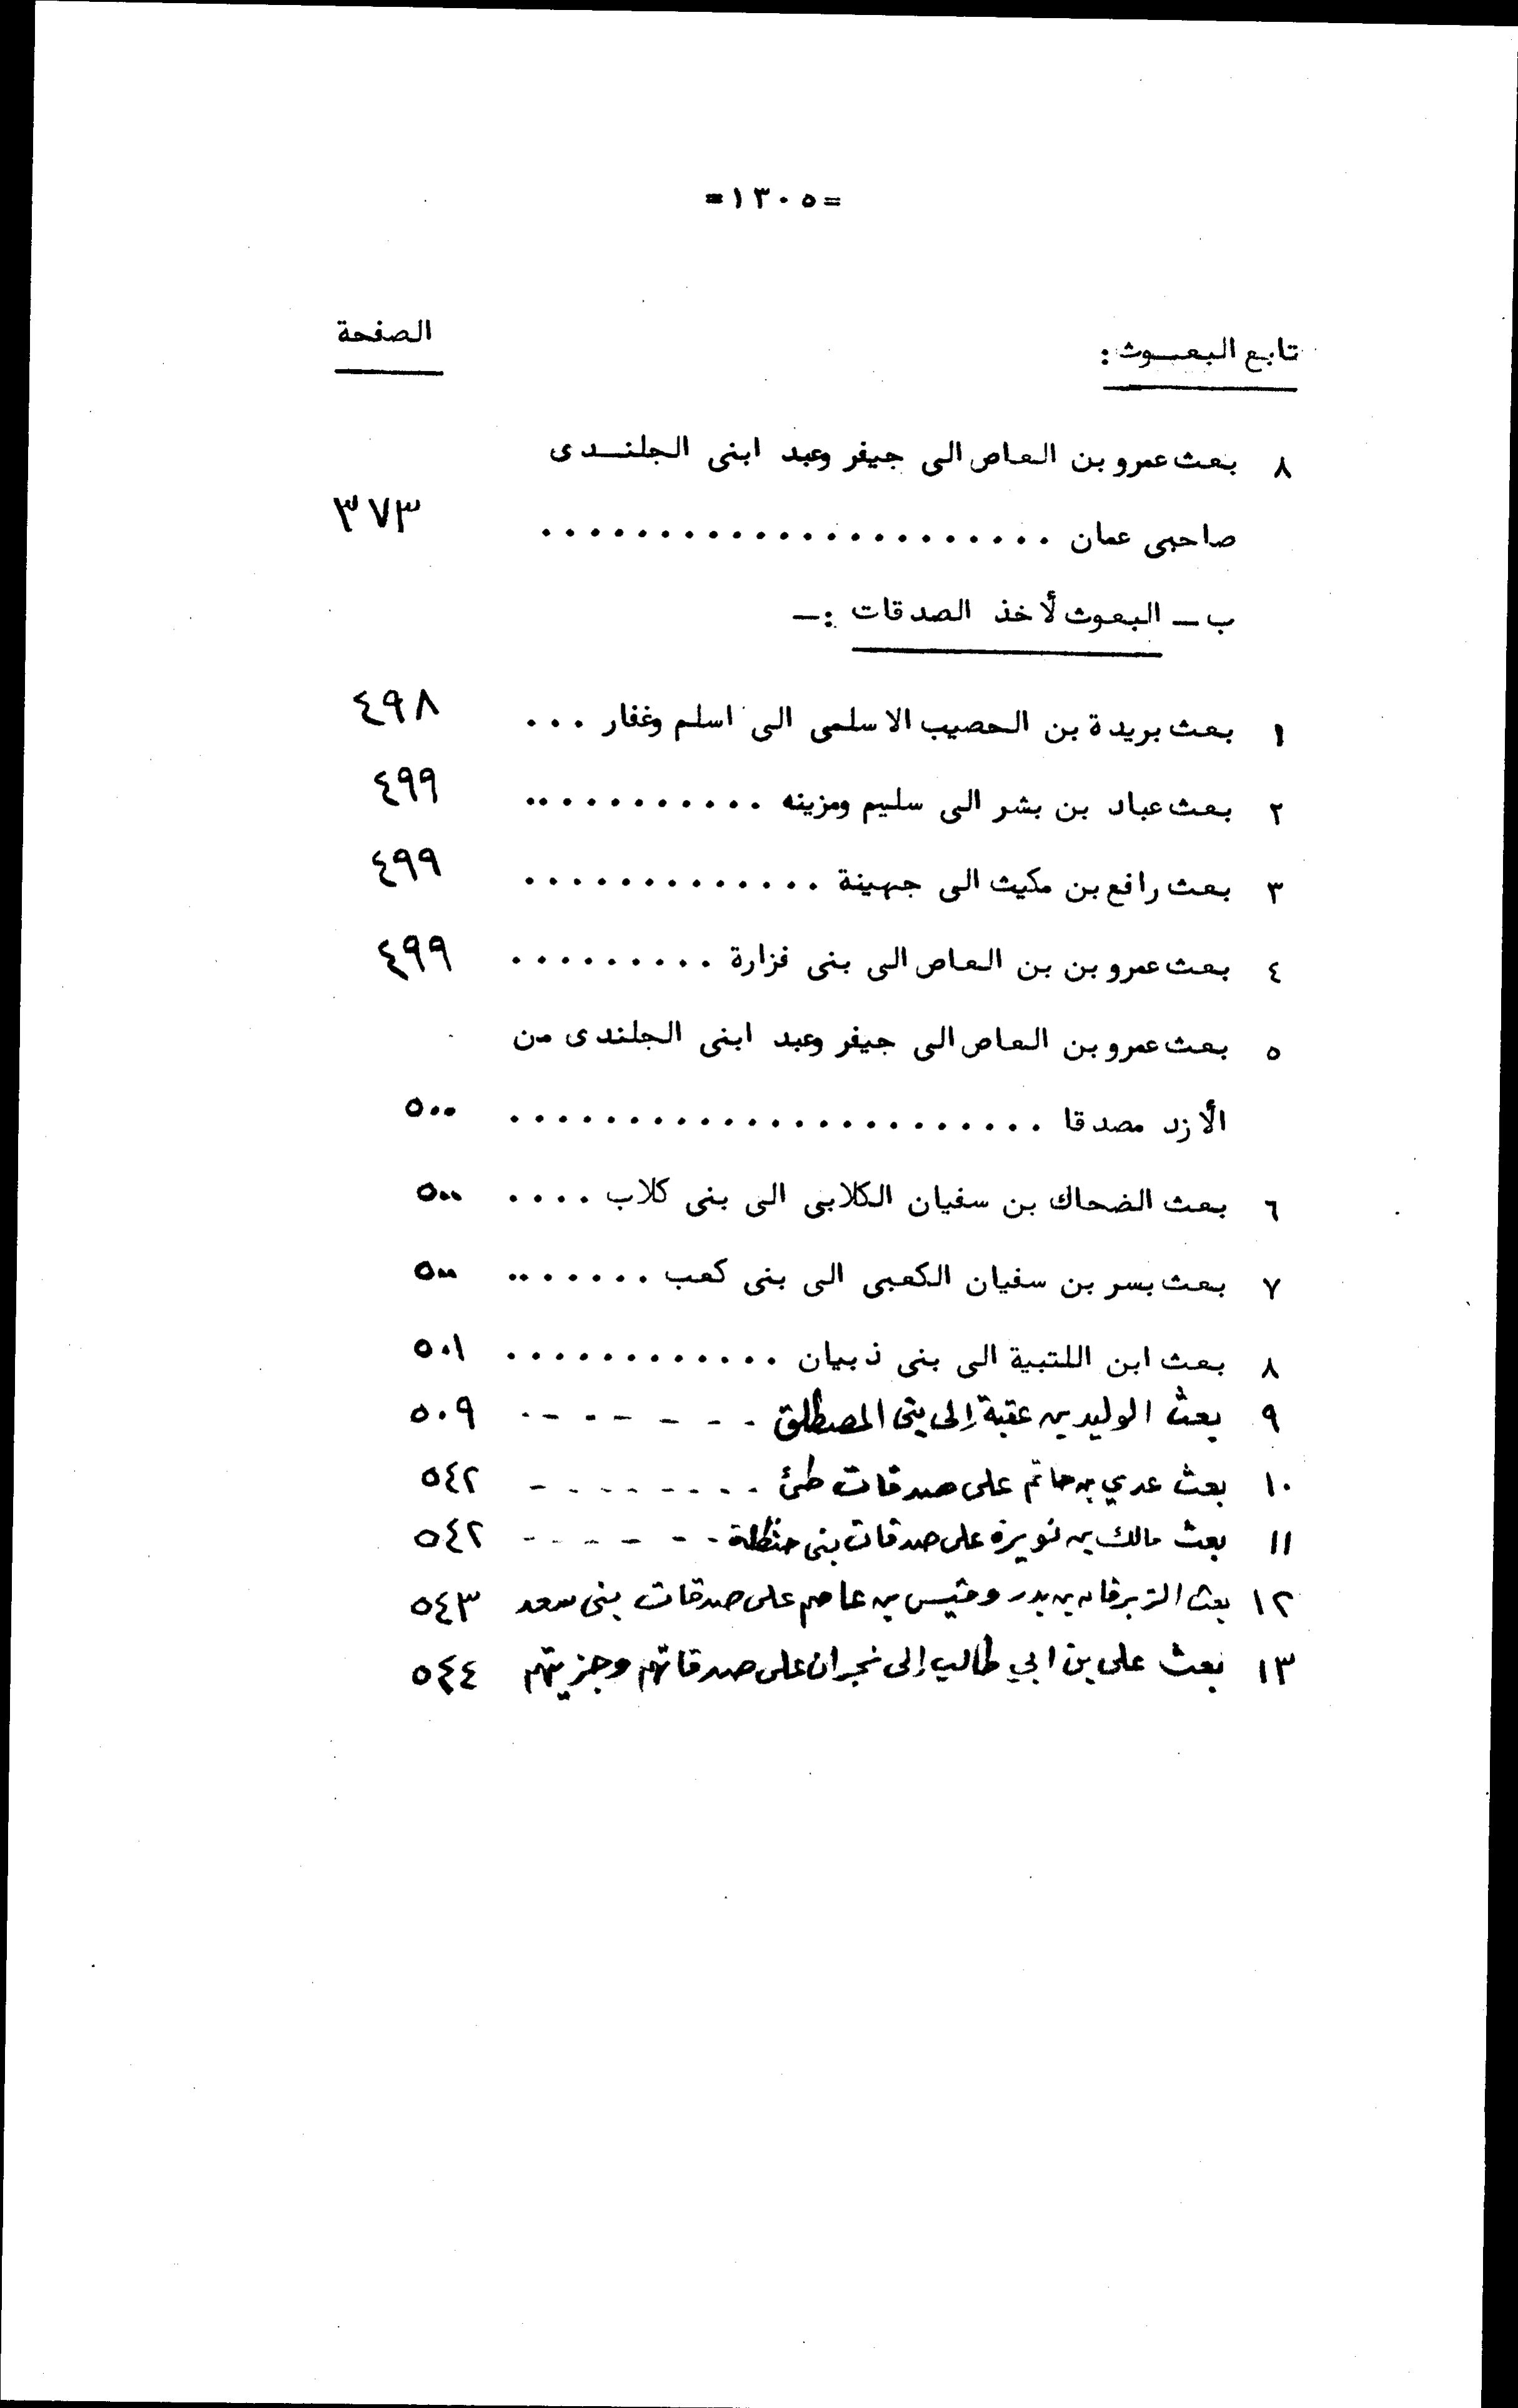 =١٣٠٥=
تابع البعوث : الصفحة
٨ بعث عمرو بن العاص الى جيفر وعبد ابنى الجلندى
صاحبى عمان ...................... ٣٧٣
ب ــ البعوث لأخذ الصدقات :ــ
١ بعث بريدة بن الحصيب الاسلمى الى اسلم وغفار ... ٤٩٨
٢ بعث عباد بن بشر الى سليم ومزينه ........... ٤٩٩
٣ بعث رافع بن مكيث الى جهينة ............. ٤٩٩
٤ بعث عمرو بن بن العاص الى بنى فزارة ......... ٤٩٩
٥ بعث عمرو بن العاص الى جيفر وعبد ابنى الجلندى من
الأزد مصدقا ....................... ٥٠٠
٦ بعث الضحاك بن سفيان الكلابى الى بنى كلاب .... ٥٠٠
٧ بعث بسر بن سفيان الكعبى الى بنى كعب ........ ٥٠٠
٨ بعث ابن اللتبية الى بنى ذبيان ............ ٥٠١
٩ بعث الوليد بن عقبة إلى بنى المصطلق - - - - - - - ٥٠٩
١٠ بعث عدي بن حاتم على صدقات طئ - - - - - - - - ٥٤٢
١١ بعث مالك بن نويرة على صدقات بنى حنظلة - - - - - - - ٥٤٢
١٢ بعث الزبرقان بن بدر وقيس بن عاصم على صدقات بنى سعد ٥٤٣
١٣ بعث على بن ابي طالب إلى نجران على صدقاتهم وجزيتهم ٥٤٤